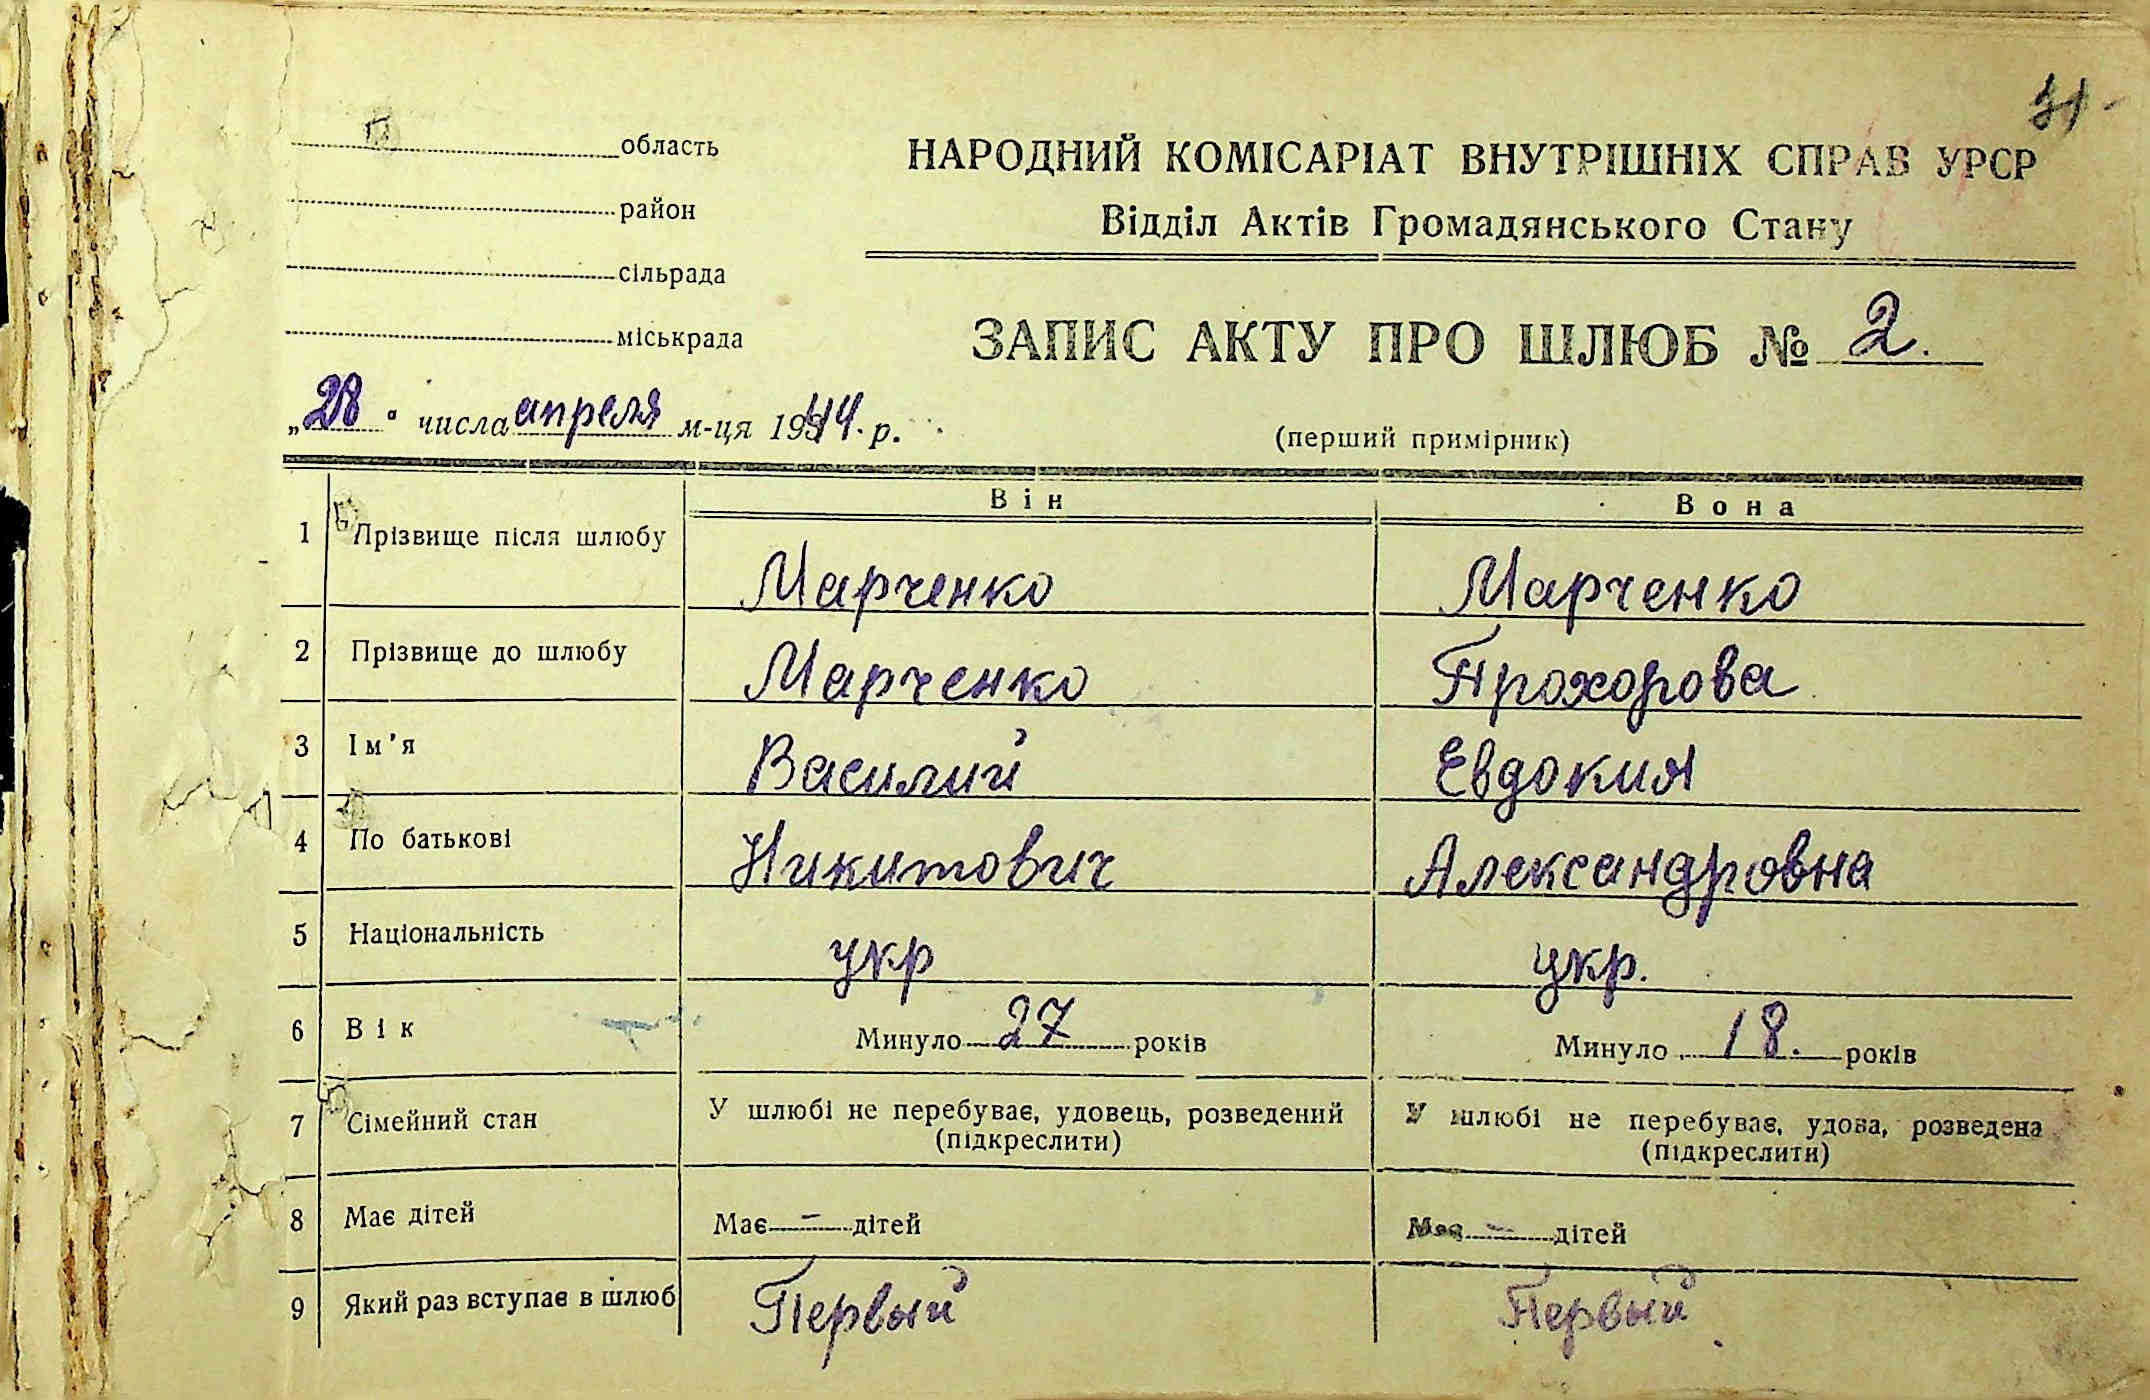 область
район
сільрада
міськрада
НАРОДНИЙ КОМІСАРІАТ ВНУТРІШНІХ СПРАВ УРСР
Відділ Актів Громадянського Стану
ЗАПИС АКТУ ПРО ШЛЮБ № 2.
„28“ числа апреля м-ця 1944 р.
(перший примірник)
Він Вона
1 Прізвище після шлюбу Марченко Марченко
2 Прізвище до шлюбу Марченко Прохорова
3 Ім'я Василий Евдокия
4 По батькові Никитович Александровна
5 Національність укр укр.
6 Вік Минуло 27 років Минуло 18. років
7 Сімейний стан У шлюбі не перебуває, удовець, розведений У шлюбі не перебуває, удова, розведена
(підкреслити) (підкреслити)
8 Має дітей Має – дітей Має – дітей
9 Який раз вступає в шлюб Первый Первый